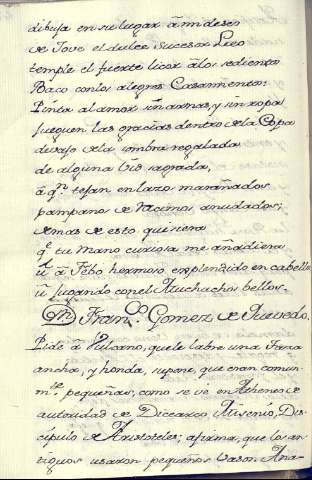 dibuja en su lugar â mi deseo
de Jove el dulce sucesor Lieo
temple el fuerte licor â los sedientos
Baco con los alegres Casamientos:
Pinta al amor sin armas, y sin ropa
jueguen las gracias dentro de la Copa
devajo de la sombra regalada
de alguna Vid sagrada,
â qn. tejan en lazos marañados
pampanos de racimos anudados;
demas de esto quisiera
qe. tu mano curiosa me añadiera
û â Febo hermoso esplendido en cabellos
û jugando con el Muchachos bellos.
Dn. Franco. Gomez de Quevedo.
Pide â Vulcano, que le labre una Taza
ancha, y honda, supone, que eran comun-
mte. pequeñas, como se ve en Atheneo de
autoridad de Dicearco Mesenio, Dis-
cipulo de Aristoteles; afirma, que los an-
tiguos usaron pequeños Vasos. Ana-